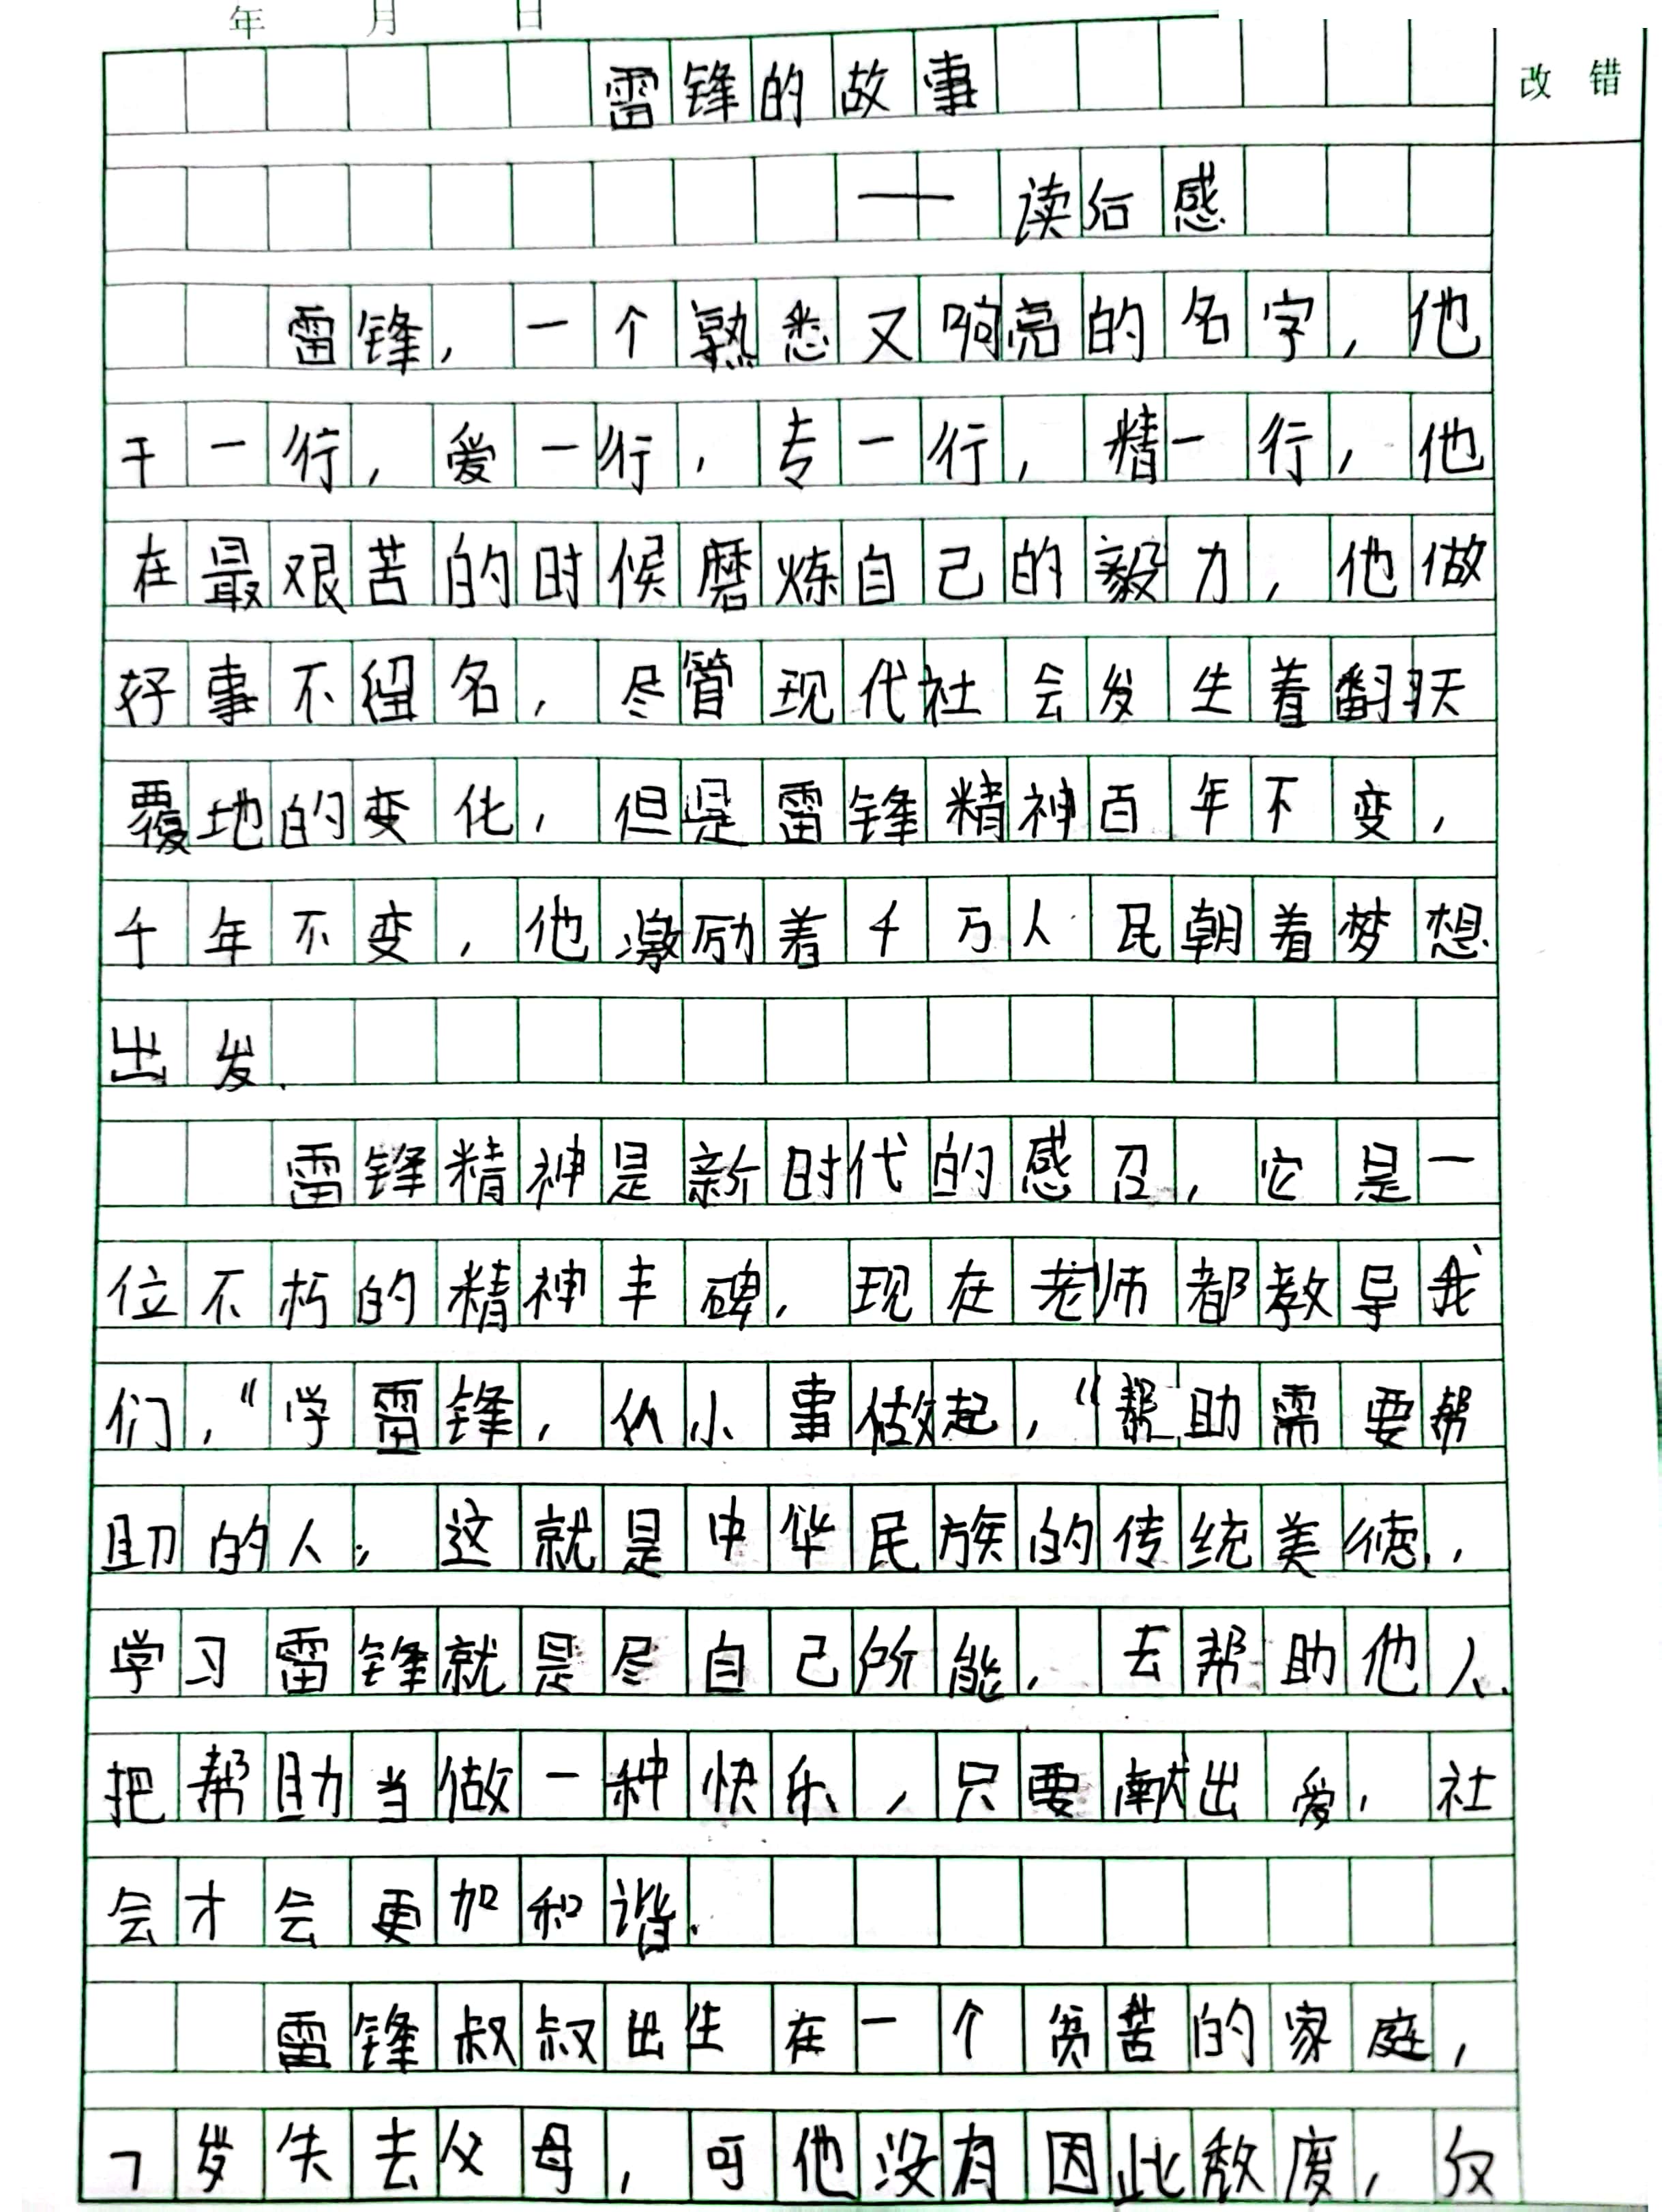 年 月 日
雷锋的故事
改错
——读后感
雷锋,一个熟悉又响亮的名字,他
干一行,爱一行,专一行,精一行,他
在最艰苦的时候磨炼自己的毅力,他做
好事不留名,尽管现代社会发生着翻天
覆地的变化,但是雷锋精神百年不变,
千年不变,他激励着千万人民朝着梦想
出发.
雷锋精神是新时代的感召,它是一
位不朽的精神丰碑,现在老师都教导我
们,"学雷锋,从小事做起,"帮助需要帮
助的人,这就是中华民族的传统美德,
学习雷锋就是尽自己所能,去帮助他人.
把帮助当做一种快乐,只要献出爱,社
会才会更加和谐.
雷锋叔叔出生在一个贫苦的家庭,
7岁失去父母,可他没有因此敖废,仅